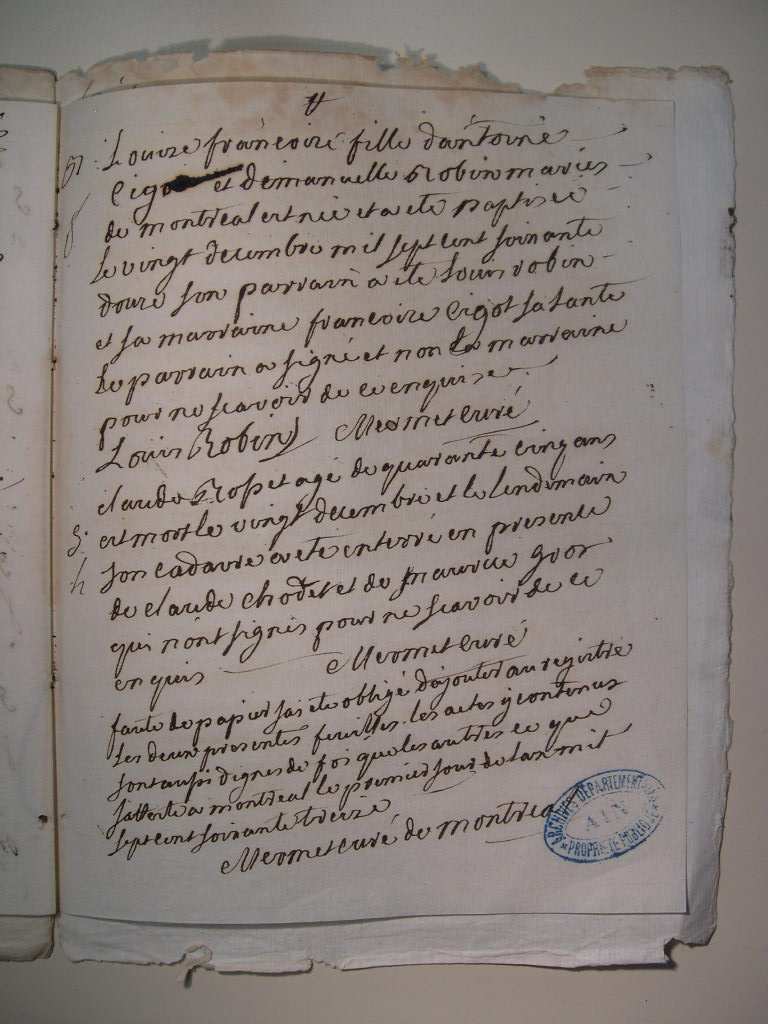 Louise françoise fille d'antoine
Cigot et d'emanuelle Robin mariés
de montreal est née et a ete baptisée
le vingt decembre mil sept cent soixante
douze son parrain a ete Louis robin
et sa marraine françoise Cigot sa tante
le parrain a signé et non la marraine
pour ne scavoir de ce enquise.
Louis Robin Mermet curé
claude Rosset agé de quarante cinq ans
est mort le vingt decembre et le lendemain
son cadavre a ete enterré en presence
de claude Chodet et de maurice gros
qui n'ont signés pour ne scavoir de ce
enquis Mermet curé
faute de papier j'ai ete obligé d'ajouter au registre
les deux presentes feuilles. les actes y contenus
sont aussi dignes de foi que les autres ce que
j'atteste a montreal le premier jour de l'an mil
sept cent soixante treize
Mermet curé de montreal
ARCHIVES DEPARTEMENTALES
AIN
* PROPRIETE PUBLIQUE *